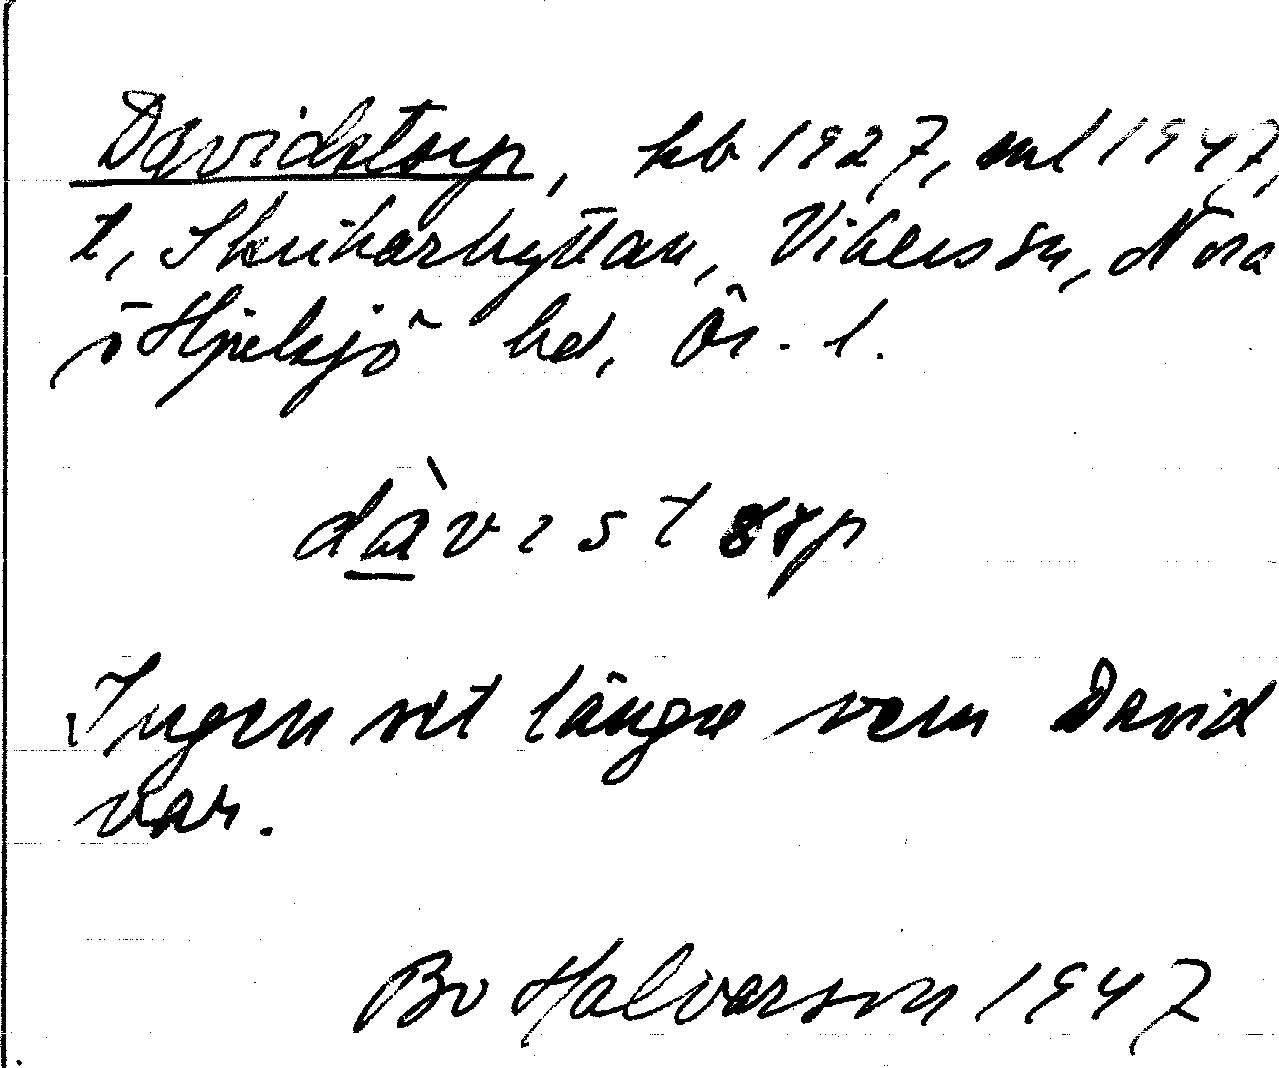 Davidstorp, kb 1927, ml 1947,
t, Skrikarhyttan, Vikers sn, Nora
o Hjulsjö hd, Ör. l.
dàvistørp
Ingen vet längre vem David
var.
Bo Halvarson 1947